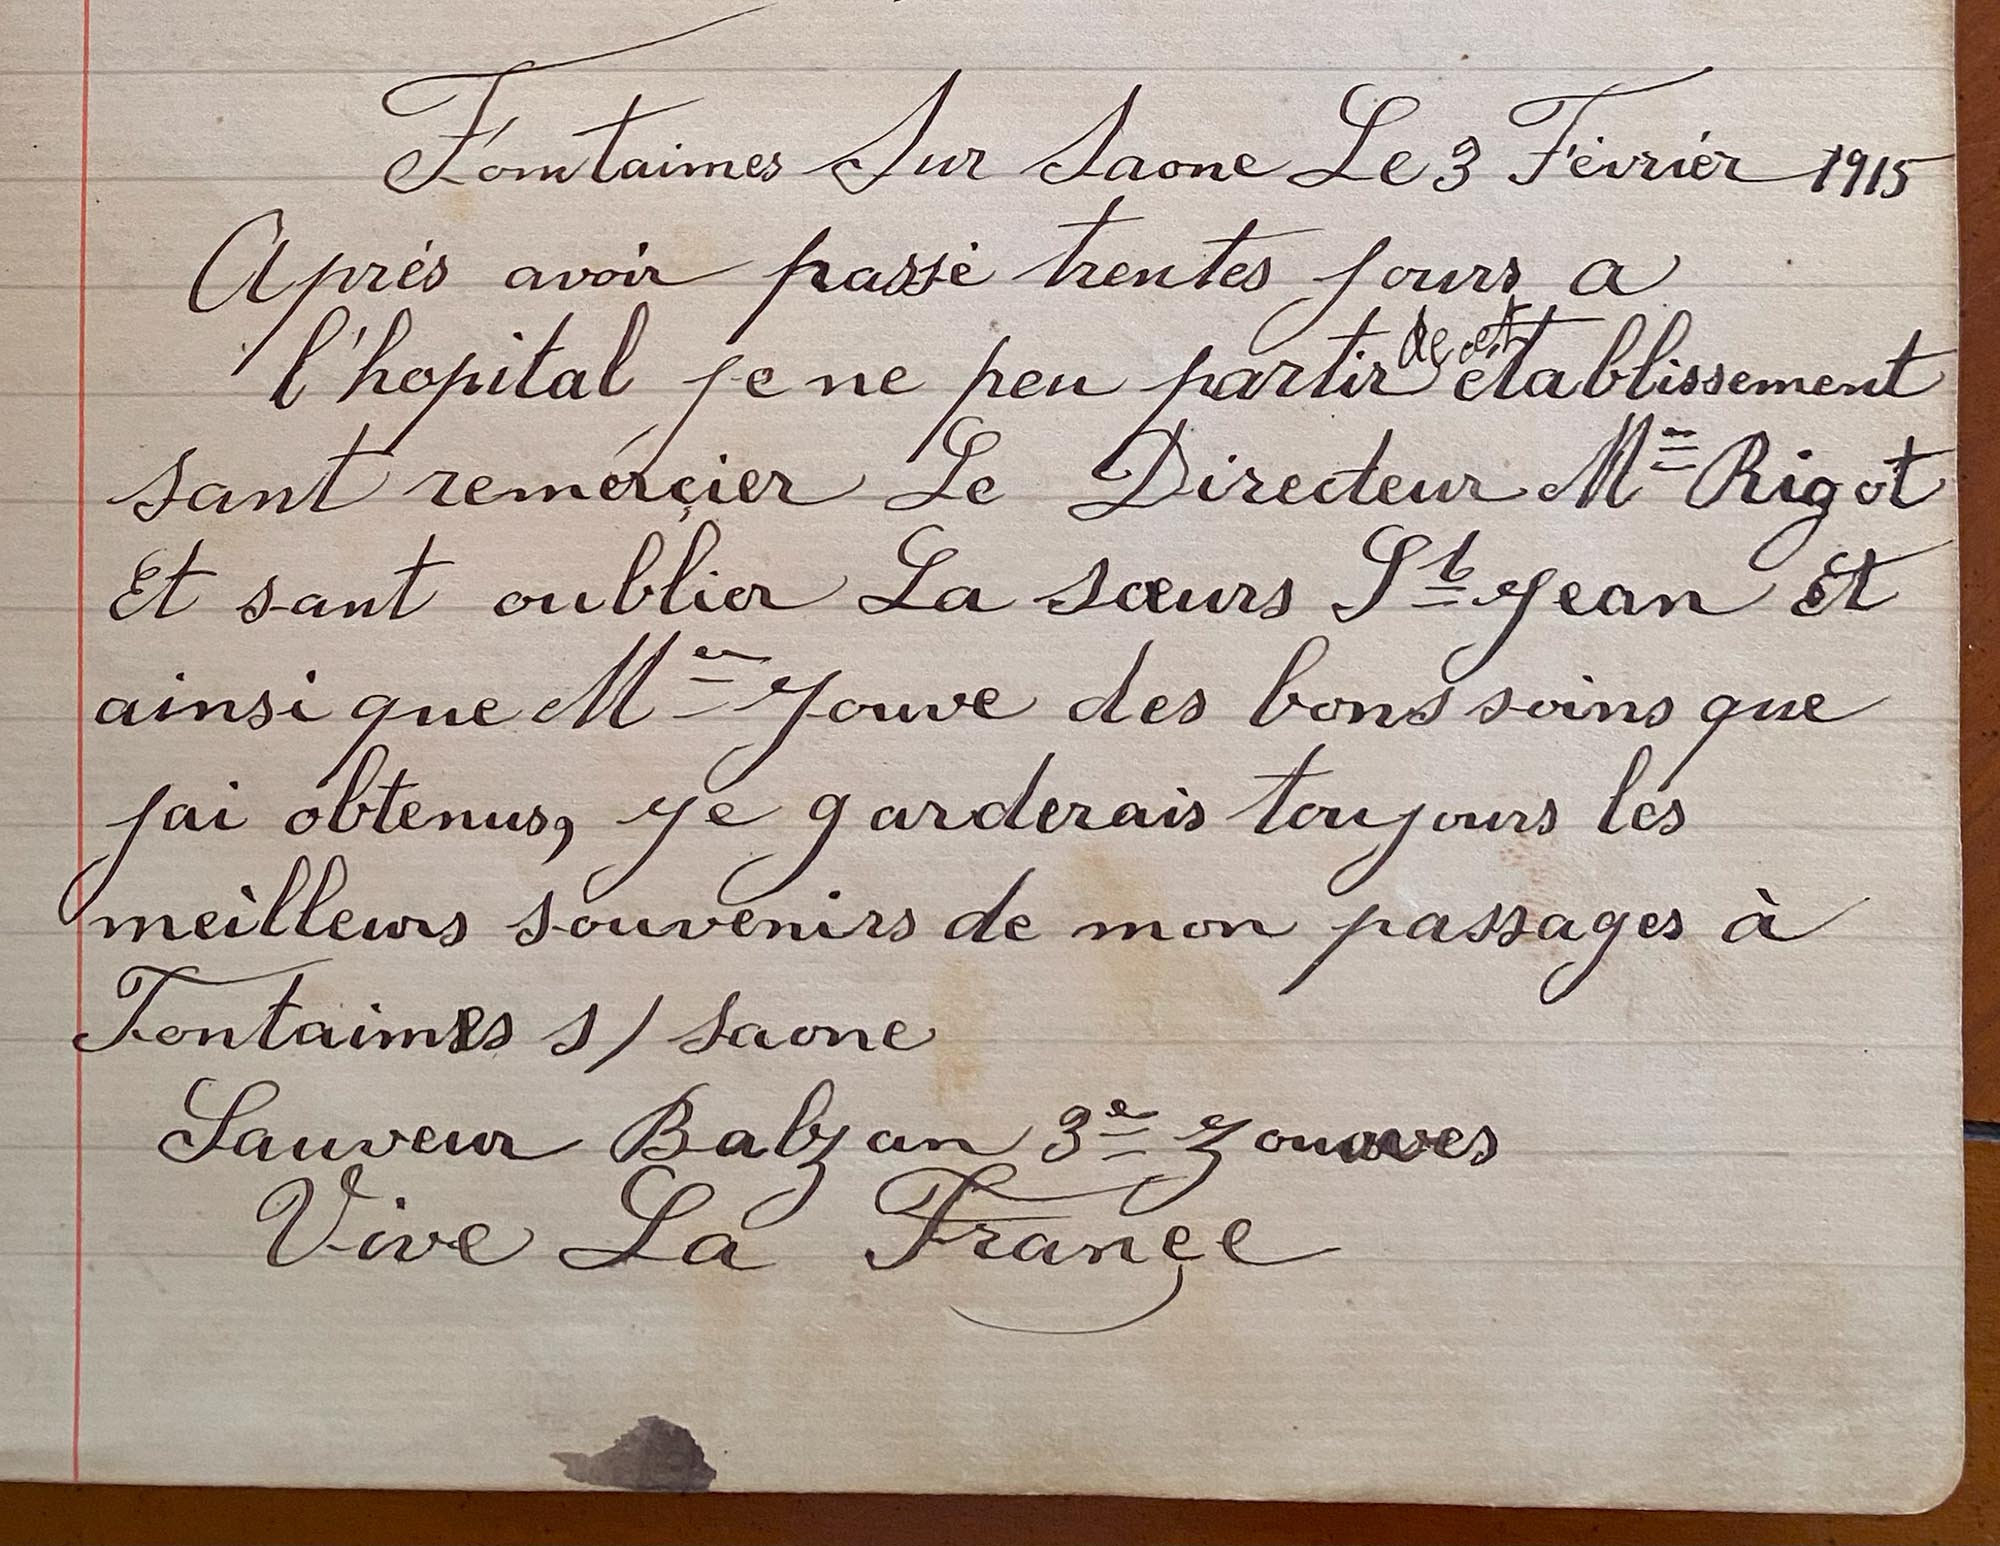 Fontaimes Sur Saone Le 3 Février 1915
Aprés avoir passé trentes jours a
l'hopital je ne peu partir de cet etablissement
sant remérçier Le Directeur Mr Rigot
Et sant oublier La sœurs St Jean Et
ainsi que Me Jouve des bons soins que
jai obtenus, je garderais toujours les
meilleurs souvenirs de mon passages à
Fontaimes s/ saone
Sauveur Balzan 3e zouaves
Vive La Françe